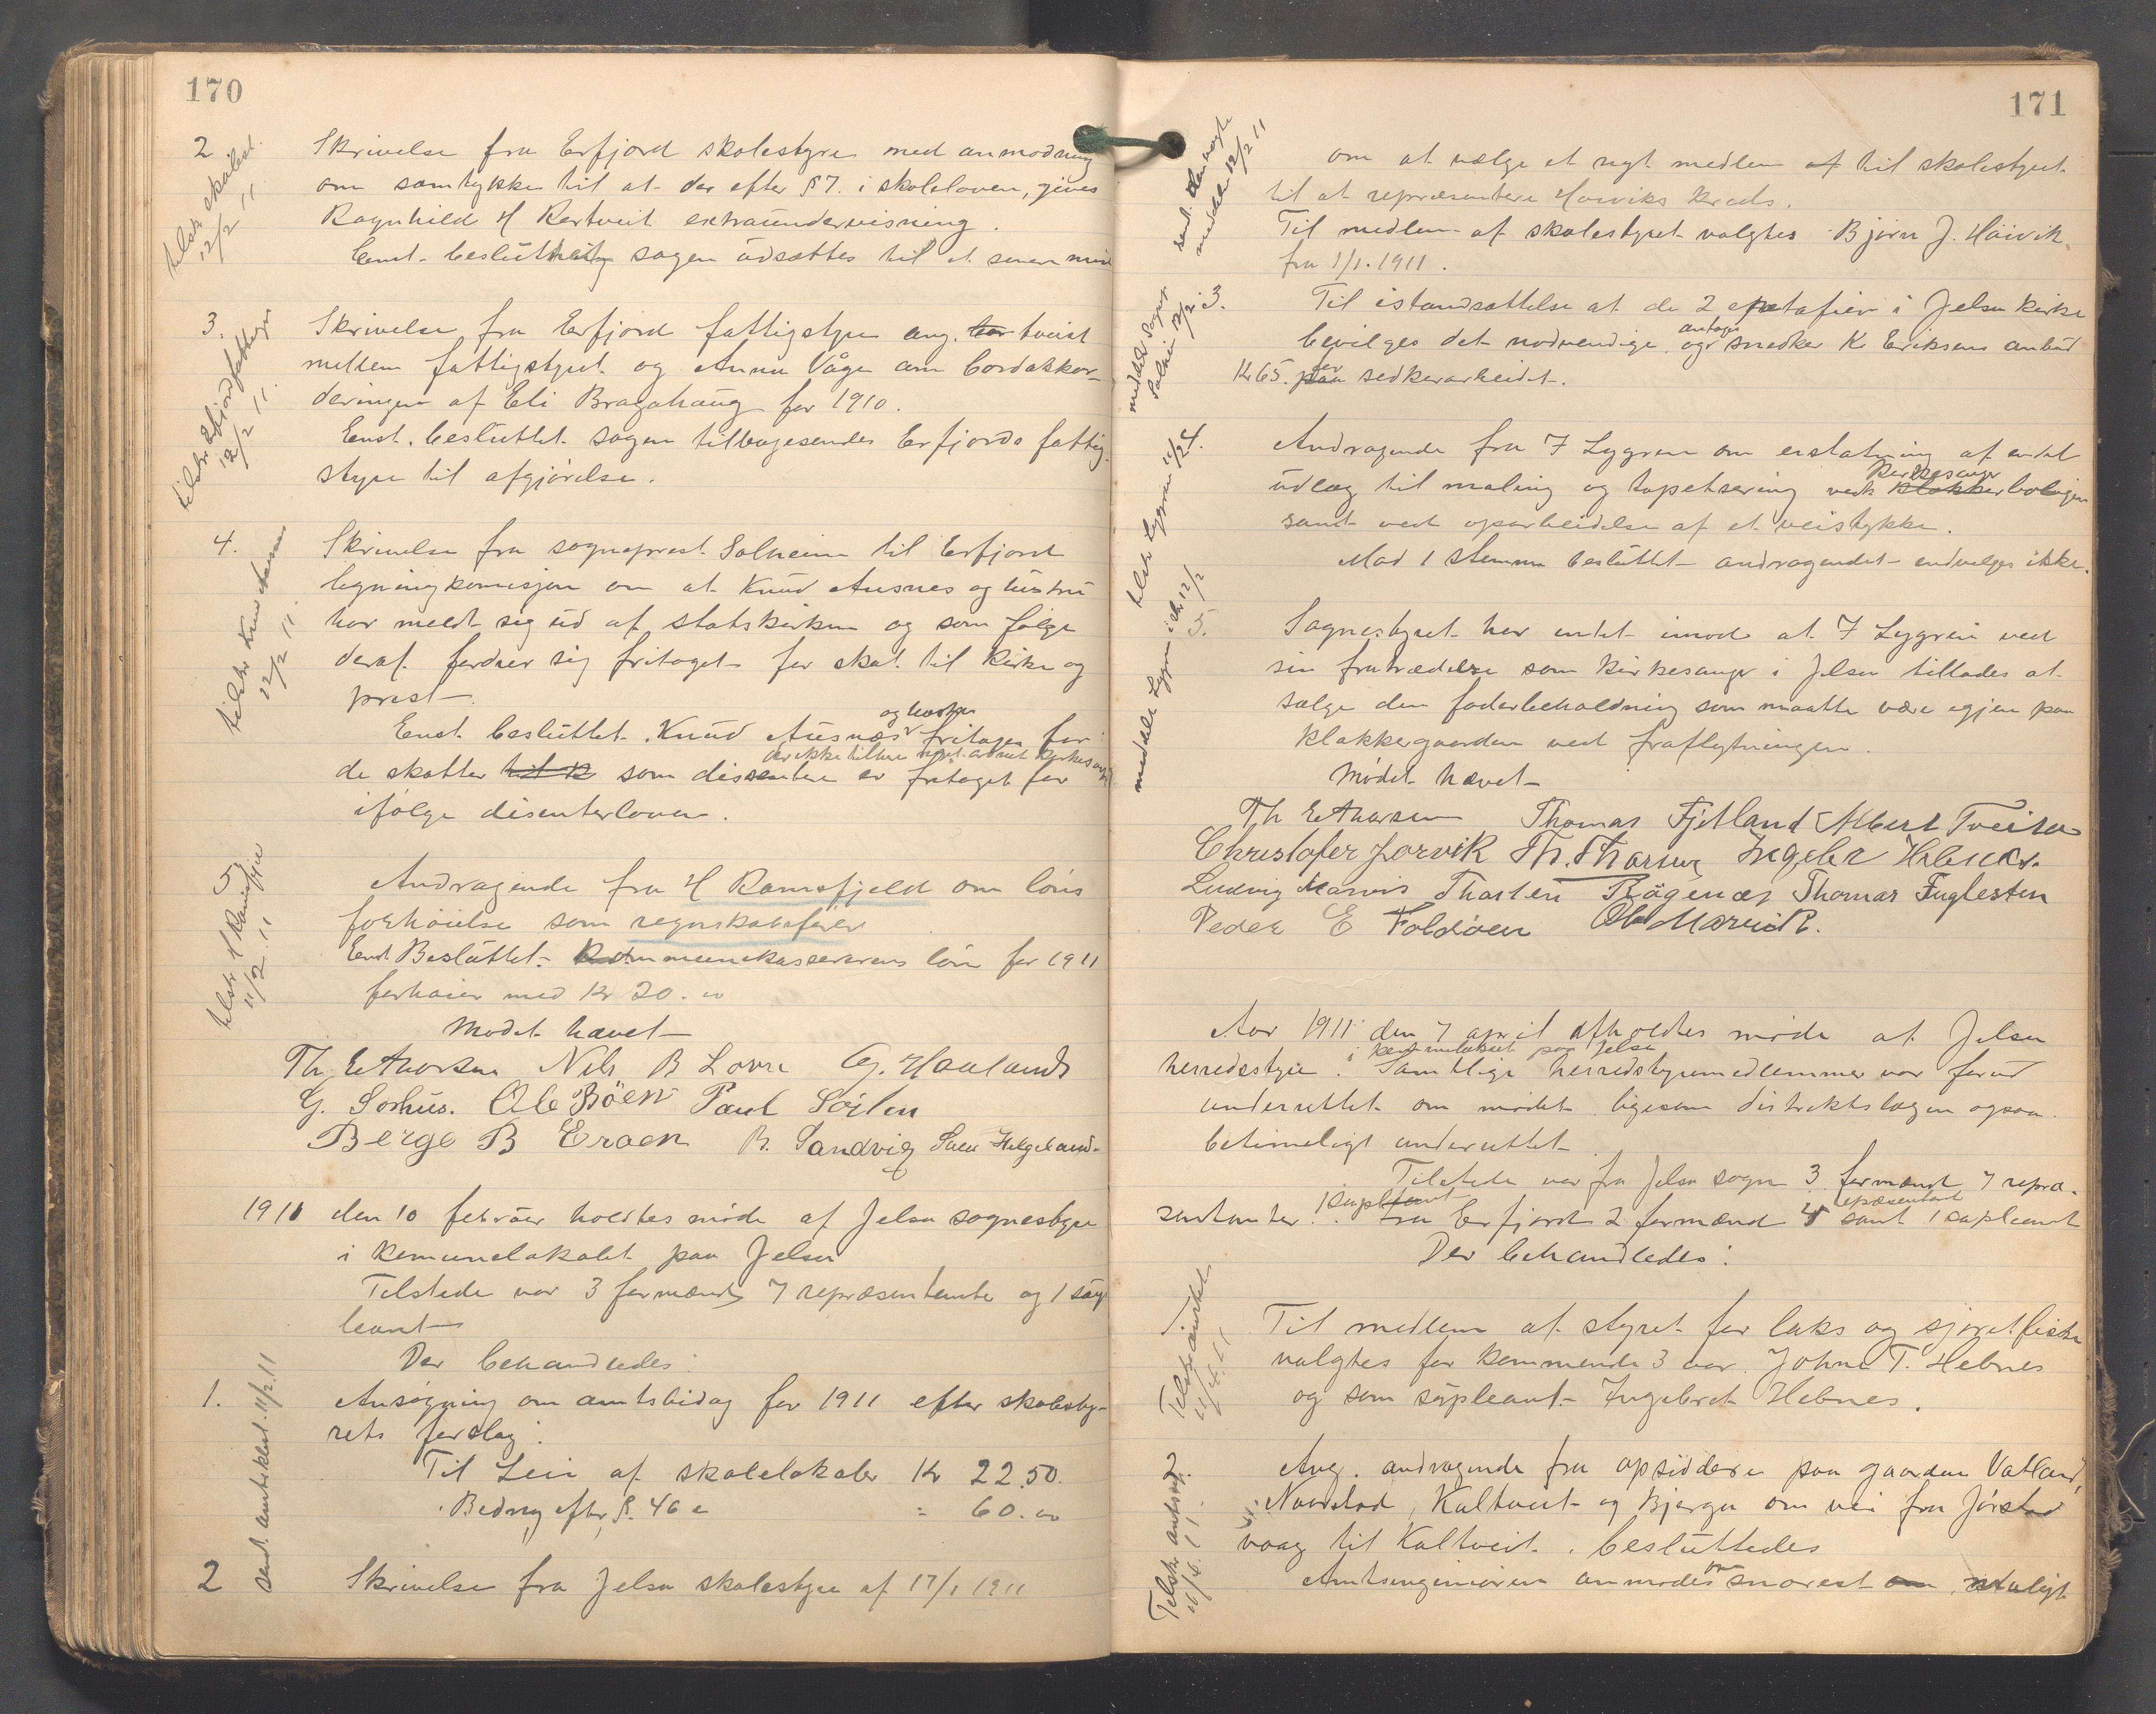 170
2
tilstr. skolest.
12/2 11
Skrivelse fra Erfjord skolestyre med anmodning
om samtykke til at der efter §7. i skoleloven, gives
Ragnhild H Rertveit extraundervisning.
Enst. besluttet sagen udsættes til et senere
3.
tilstr. Erfjord fattigst.
12/2 11.
Skrivelse fra Erfjord fattigstyre ang. tveist
mellem fattigstyret og Anna Våge om bordakkor-
deringen af Eli Bragahaug for 1910.
Enst. besluttet sagen tilbagesendes Erfjords fattig-
styre til afgjørelse.
4.
tilstr. Knud Ausnes
12/2 11.
Skrivelse fra sogneprest Solheim til Erfjord
ligningkomisjon om at Knud Ausnes og hustru
har meldt sig ud af statskirken og som følge
deraf fordrer sig fritaget for skat til kirke og
prest
Enst. besluttet. Knud Ausnæs og hustru fritages for
de skatter som dissentere er fritaget for
ifølge disenterloven.
5
tilstr. H Ramsfjeld
11/2 11
Andragende fra H Ramsfjeld om løns
forhøielse som regnskabsfører
Enst Besluttet. Kommunekassererens løn for 1911
forhøies med Kr 20.00
Mødet hævet
Th E Thorsen Nils B Lovra G. Haaland
G. Sørhus. Ole Bøen Paul Søilen
Berge B Eraen R. Sandvig Svein Helgeland.
1911 den 10 februar holdtes møde af Jelsa sognestyre
i komunelokalet paa Jelsa
Tilstede var 3 formænd 7 repræsentanter og 1 sup
leant
Der behandledes:
1.
sendt amtskolest. 11/2.11
Ansøgning om amtsbidrag for 1911 efter skolesty-
rets forslag.
Til Leie af skolelokaler Kr 22.50.
Bidrag efter §. 46 e = 60.00
2
Skrivelse fra Jelsa skolestyre af 17/1 1911
171
meddelt 12/2 11
om at vælge et nyt medlem af til skolestyret
til at repræsentere Høiviks Kreds.
Til medlem af skolestyret valgtes Bjørn J. Høivik.
fra 1/1. 1911.
3.
meddelt Sognep.
Solheim 12/2
Til istandsættelse af de 2 epetafier i Jelsa kirke
bevilges det nødvendige. og antages snedker K Eriksens anbud
Kr 65. for sedkerarbeidet.
4.
tilstr Lygren 11/2
Andragende fra F Lygren om erstatning af endel
udlæg til maling og tapetsering ved Kirkesanger boligen
samt ved oparbeidelse af et veistykke.
Mod 1 stemme besluttet andragendet indvilges ikke.
5.
meddelt Lygren 12/2
Sognestyret har intet imod at F Lygren ved
sin fratrædelse som kirkesanger i Jelsa tillades at
sælge den foderbeholdning som maatte være igjen paa
Klokkergaarden ved fraflytningen.
Mødet hævet
Th E Thorsen Thomas Fjetland Albert Tveita
Christofer Jorvik Th. Thorsen Ingebr Hebnes.
Ludvig Marvik Thorsten Bøgenæs Thomas Fuglesten
Peder E Foldøen Ole Marvik.
Aar 1911 den 7 april afholdtes møde af Jelsa
herredsstyre i komunelokalet paa Jelsa. Samtlige herredstyremedlemmer var forud
underrettet om mødet ligesom distriktslægen ogsaa
betimeligt underrettet
Tilstede var fra Jelsa sogn 3 formænd 7 repræ-
sentanter. 1 supleant fra Erfjord 2 formænd 4 repræsentant samt 1 supleant
Der behandledes:
1.
Tilstr amtet
11/4.11
Til medlem af styret for laks og sjøretfiske
valgtes for kommende 3 aar. Johne T. Hebnes
og som supleant Ingebret Hebnes.
2.
Tilstr. amtsing.
11/4.11.
Ang. andragende fra opsiddere paa gaarden Vatland,
Nordstad, Kaltveit og Bjerga om vei fra Jørstad
vaag til Kaltveit. besluttedes
Amtsingeniøren anmodes om snarest muligt